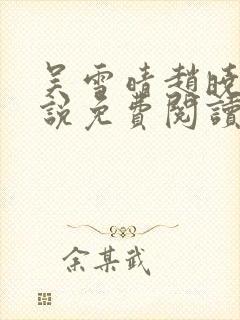 吴雪晴趙曉
說免費閱讀
余某武